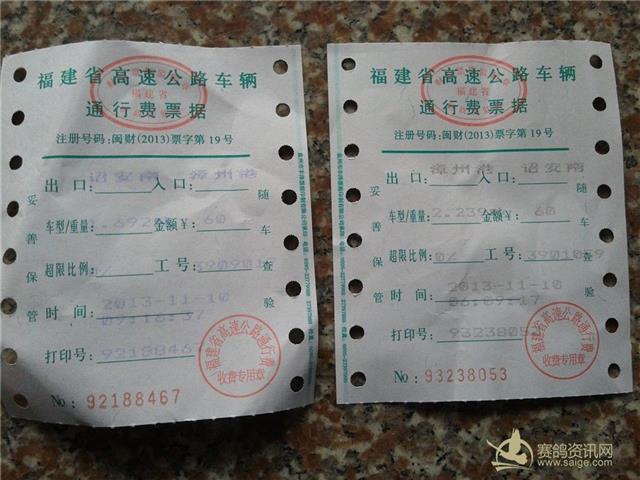 福建省高速公路车辆
福建省
通行费票据
注册号码:闽财(2013)票字第19号
出口: 诏安南 入口: 漳州港
车型/重量: 金额¥: 60
超限比例: 0% 工号:
时间: 2013-11-10
打印号: 92188467
No: 92188467
妥善保管
随车查验
福建省高速公路通行费
收费专用章
福建省高速公路车辆
福建省
通行费票据
注册号码:闽财(2013)票字第19号
出口: 漳州港 入口: 诏安南
车型/重量: 金额¥: 60
超限比例: 0% 工号: 3901059
时间: 2013-11-10
06:09:17
打印号: 93238053
No: 93238053
妥善保管
随车查验
福建省高速公路通行费
收费专用章
赛鸽资讯网
www.saige.com